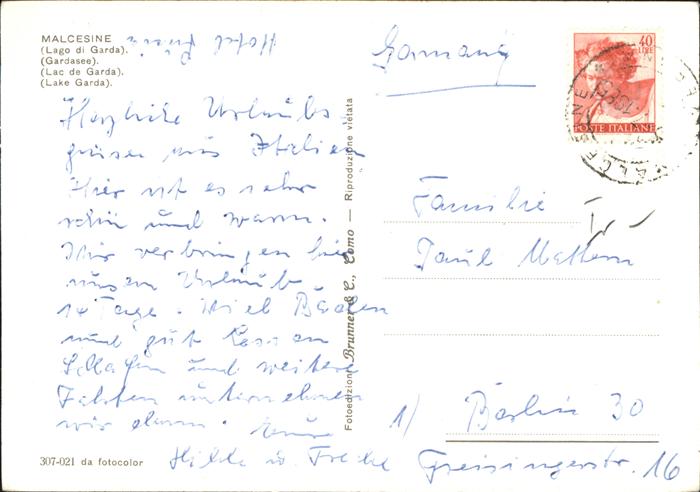 MALCESINE
(Lago di Garda).
(Gardasee).
(Lac de Garda).
(Lake Garda).
Hotel
Germany
40
LIRE
POSTE ITALIANE
Herzliche Urlaubs
grüsse aus Italien
Hier ist es sehr
schön und warm.
Wir verbringen hier
unsen Urlaub
14 Tage. Viel Baden
und gut Essen
Schlafen und weitere
Fahrten unternehmen
wir dann. Eure
Hilde u.
Fotoedizioni Brunner & C., Como — Riproduzione vietata
Familie
Paul Mattern
1) Berlin 30
Geisingerstr. 16
307-021 da fotocolor